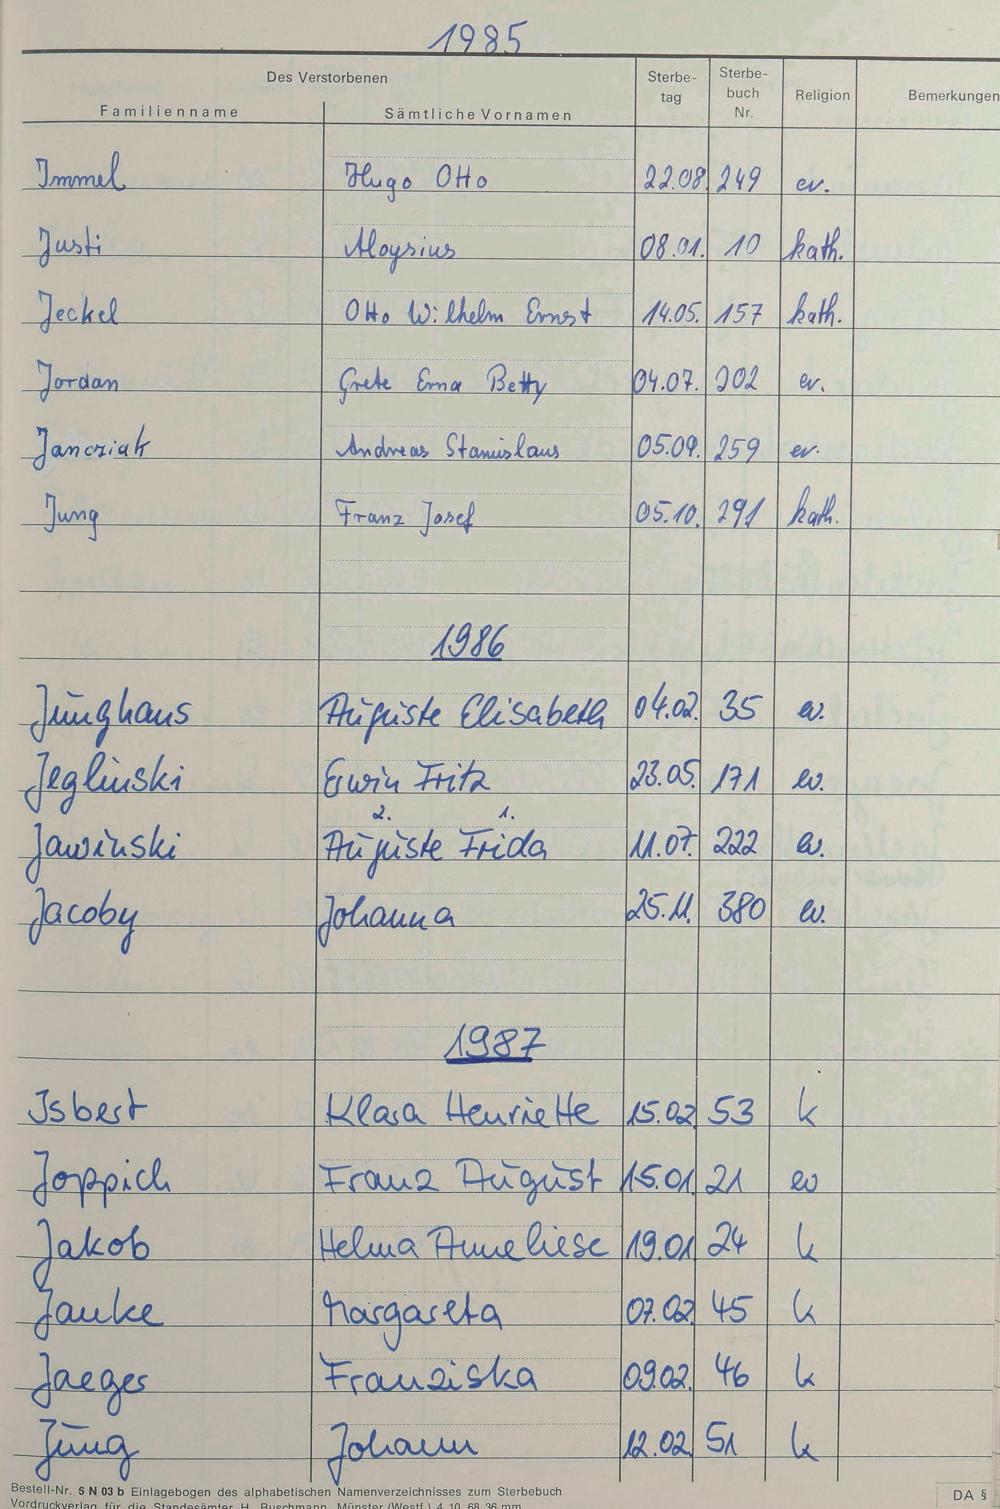 1985
Des Verstorbenen Sterbe- Sterbe-
tag buch Religion Bemerkungen
Familienname Sämtliche Vornamen Nr.
Immel Hugo Otto 22.08. 249 ev.
Justi Aloysius 08.01. 10 kath.
Jeckel Otto Wilhelm Ernst 14.05. 157 kath.
Jordan Grete Erna Betty 04.07. 202 ev.
Jancziak Andreas Stanislaus 05.09. 259 ev.
Jung Franz Josef 05.10. 291 kath.
1986
Junghaus Auguste Elisabeth 04.02. 35 ev.
Jeglinski Erwin Fritz 23.05. 171 ev.
2. 1.
Jawinski Auguste Frida 11.07. 222 ev.
Jacoby Johanna 25.11. 380 ev.
1987
Isbert Klara Henriette 15.02 53 k
Joppich Franz August 15.01. 21 ev
Jakob Helma Anneliese 19.01 24 k
Janke Margareta 07.02. 45 k
Jaeger Franziska 09.02. 46 k
Jung Johann 12.02 51 k
Bestell-Nr. S N 03 b Einlagebogen des alphabetischen Namenverzeichnisses zum Sterbebuch DA §
Vordruckverlag für die Standesämter H. Buschmann, Münster (Westf.) 4. 10. 68 36 mm